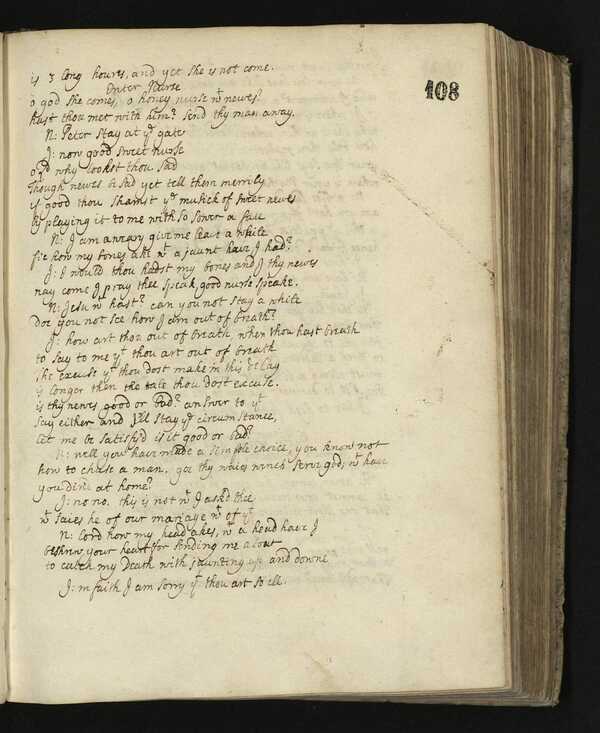 108
is 3 long houres, and yet she is not come.
Enter Nurse
o god she comes, o honey nurse wt newes?
hast thou met with him? send thy man away.
N: Peter stay at ye gate
J: now good sweet nurse
o god why lookst thou sad
Though newes be sad yet tell them merrily
if good thou shamst ye musick of sweet newes
by playing it to me with so sower a face
N: I am aweary give me leave a while
fie how my bones ake wt a jaunt have I had?
J: I would thou hadst my bones and I thy newes
nay come I pray thee speak, good nurse speake.
N: Jesu wt hast? can you not stay a while
doe you not see how I am out of breath?
J: how art thou out of breath, when thou hast breath
to say to me yt thou art out of breath
The excuse yt thou dost make in this delay
is longer then the tale thou dost excuse.
is thy newes good or bad? answer to yt
say either and I'le stay ye circumstance,
let me be satisfyd is it good or bad?
N: well you have made a simple choice, you know not
how to chuse a man. goe thy waies wench serve god, wt have
you dine at home?
J: no no. this is not wt I askd thee
wt saies he of our mariage wt of yt
N: Lord how my head akes, wt a head have I
beshrew your heart for sending me about
to catch my death with jaunting up and downe
J: in faith I am sorry yt thou art so ill.